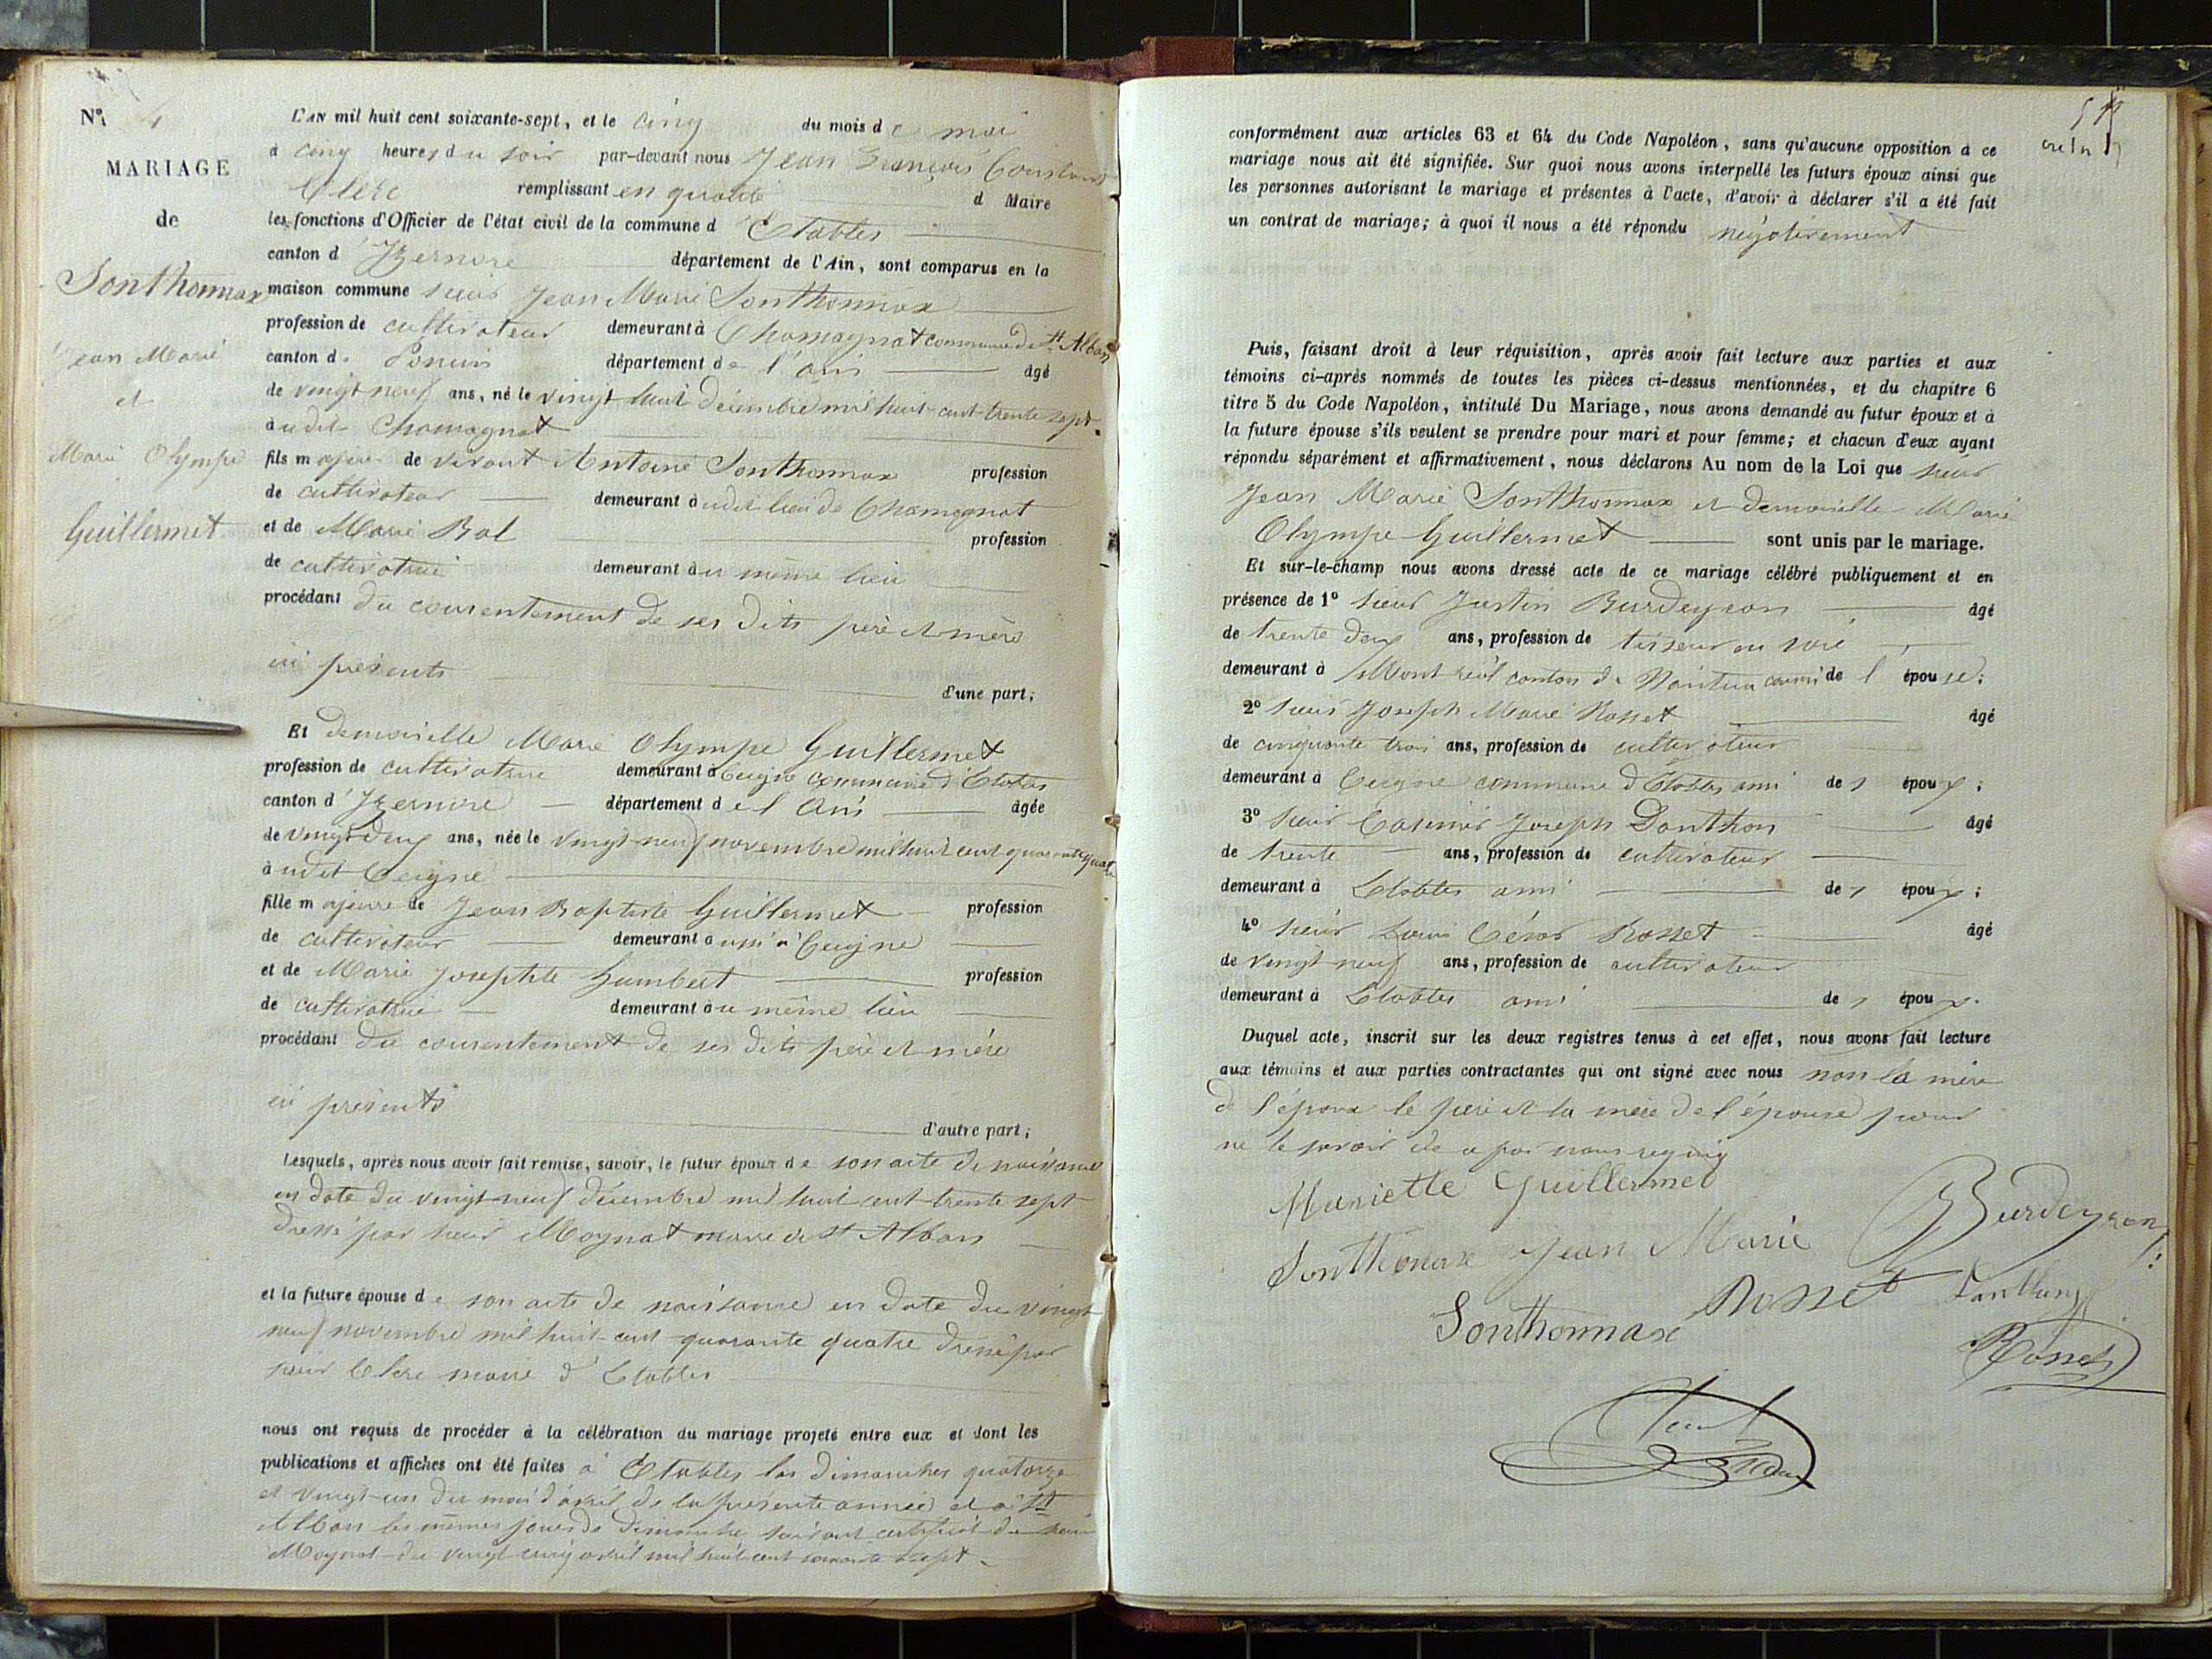 N° 4
MARIAGE
de
Sonthonnax
Jean Marie
et
Marie Olympe
Guillermet
L'AN mil huit cent soixante-sept, et le cinq du mois de mai
à cinq heures du soir par-devant nous Jean François Constant
Clerc remplissant en qualité d Maire
les fonctions d'Officier de l'état civil de la commune d'Etables
canton d'Izernore département de l'Ain, sont comparus en la
maison commune sieur Jean Marie Sonthonnax
profession de cultivateur demeurant à Chamagnat commune de St Alban
canton de Poncin département de l'ain âgé
de vingt neuf ans, né le vingt huit décembre mil huit cent trente sept
audit Chamagnat
fils majeur de vivant Antoine Sonthonnax profession
de cultivateur demeurant audit lieu de Chamagnat
et de Marie Bal profession
de cultivatrice demeurant au même lieu
procédant du consentement de ses dits père et mère
ici présents
d'une part;
Et demoiselle Marie Olympe Guillermet
profession de cultivatrice demeurant à Ceigne commune d'Etables
canton d'Izernore département de l'Ain âgée
de vingt deux ans, née le vingt-neuf novembre mil huit cent quarante quatre
audit Ceigne
fille majeure de Jean Baptiste Guillermet profession
de cultivateur demeurant aussi à Ceigne
et de Marie Josephte Humbert profession
de cultivatrice demeurant au même lieu
procédant du consentement de ses dits père et mère
ici présents
d'autre part;
Lesquels, après nous avoir fait remise, savoir, le futur époux de son acte de naissance
en date du vingt-neuf décembre mil huit cent trente sept
dressé par sieur Moynat maire de St Alban
et la future épouse de son acte de naissance en date du vingt
neuf novembre mil huit cent quarante quatre dressé par
sieur Clerc maire d'Etables
nous ont requis de procéder à la célébration du mariage projeté entre eux et dont les
publications et affiches ont été faites à Etables les dimanches quatorze
et vingt-un du mois d'avril de la présente année et à St
Alban les mêmes jours de dimanche suivant certificat du sieur
Moynat du vingt cinq avril mil huit cent soixante sept
conformément aux articles 63 et 64 du Code Napoléon, sans qu'aucune opposition à ce
mariage nous ait été signifiée. Sur quoi nous avons interpellé les futurs époux ainsi que
les personnes autorisant le mariage et présentes à l'acte, d'avoir à déclarer s'il a été fait
un contrat de mariage; à quoi il nous a été répondu négativement
Puis, faisant droit à leur réquisition, après avoir fait lecture aux parties et aux
témoins ci-après nommés de toutes les pièces ci-dessus mentionnées, et du chapitre 6
titre 5 du Code Napoléon, intitulé Du Mariage, nous avons demandé au futur époux et à
la future épouse s'ils veulent se prendre pour mari et pour femme; et chacun d'eux ayant
répondu séparément et affirmativement, nous déclarons Au nom de la Loi que sieur
Jean Marie Sonthonnax et demoiselle Marie
Olympe Guillermet sont unis par le mariage.
Et sur-le-champ nous avons dressé acte de ce mariage célébré publiquement et en
présence de 1° sieur Justin Burdeyron âgé
de trente deux ans, profession de tisseur en soie
demeurant à Montréal canton de Nantua cousin de l'épouse;
2° sieur Joseph Marie Rosset âgé
de cinquante trois ans, profession de cultivateur
demeurant à Ceigne commune d'Etables ami des époux;
3° sieur Casimir Joseph Danthon âgé
de trente ans, profession de cultivateur
demeurant à Etables ami des époux;
4° sieur Louis César Rosset âgé
de vingt-neuf ans, profession de cultivateur
demeurant à Etables ami des époux.
Duquel acte, inscrit sur les deux registres tenus à cet effet, nous avons fait lecture
aux témoins et aux parties contractantes qui ont signé avec nous non la mère
de l'époux le père et la mère de l'épouse pour
ne le savoir de ce par nous requis
Mariette Guillermet
Burdeyron
Sonthonax Jean Marie
Rosset Danthon
Sonthonnax
Rosset